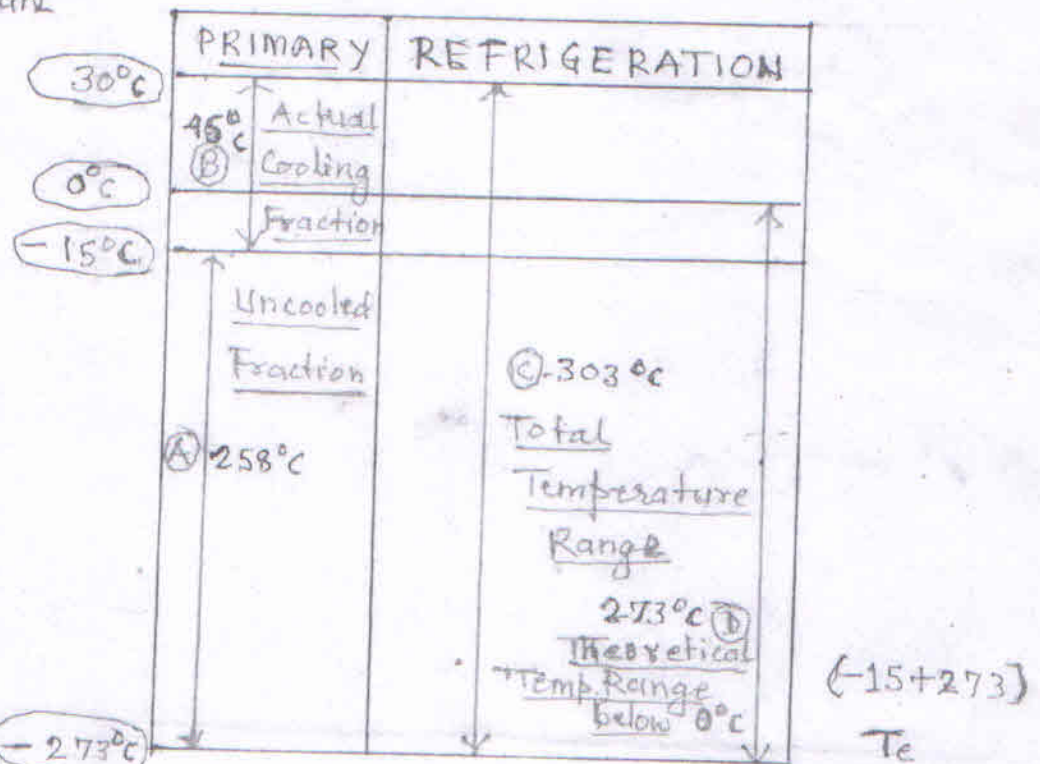 PRIMARY REFRIGERATION
30°C
45°C Actual
Ⓑ Cooling
0°C
Fraction
-15°C
Uncooled
Fraction
Ⓒ-303°C
Total
Ⓐ 258°C
Temperature
Range
273°C Ⓓ
Theoretical
Temp. Range
below 0°C
(-15+273)
-273°C
Te